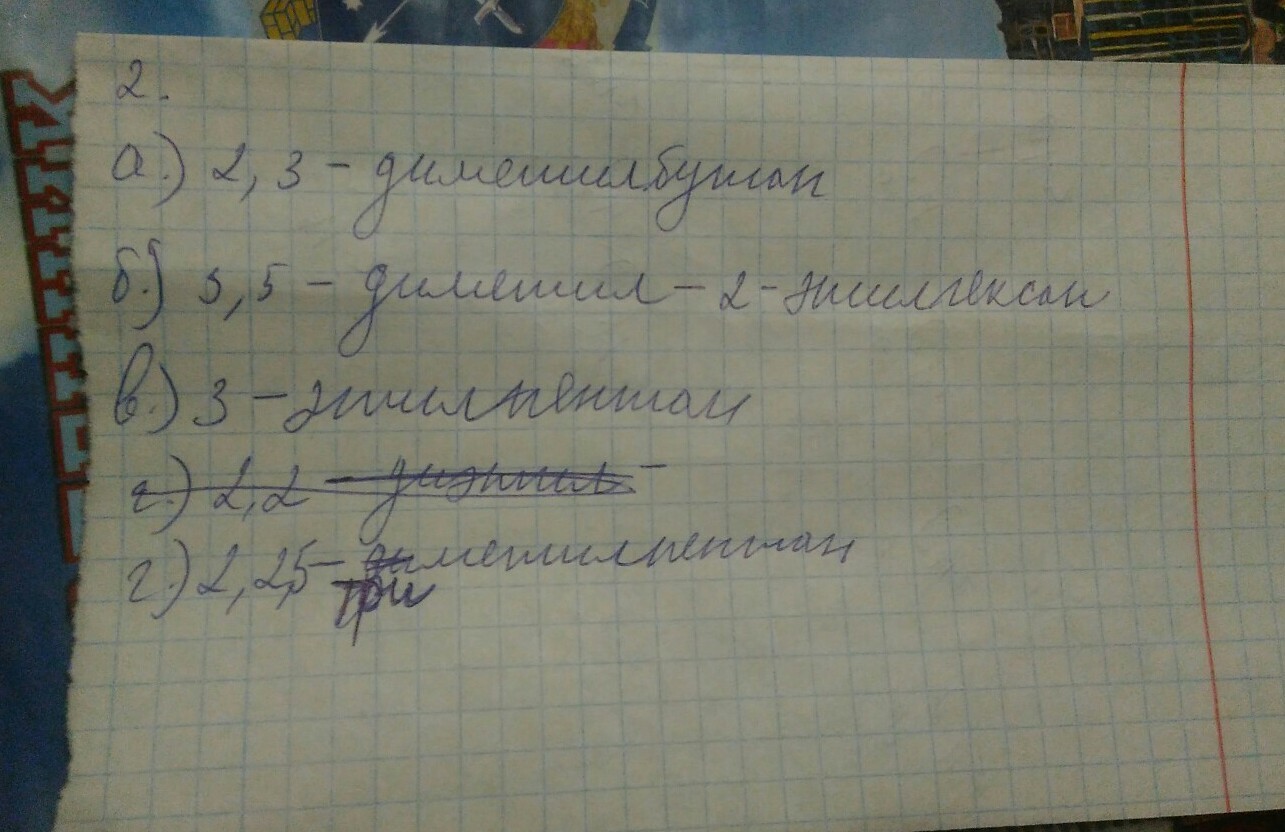 2.
а.) 2,3 - диметилбутан
б.) 3,5 - диметил - 2 - этилгексан
в.) 3 - этилпентан
г.) 2,2 - диэтил -
г.) 2,2,5 - диметилпентан
три